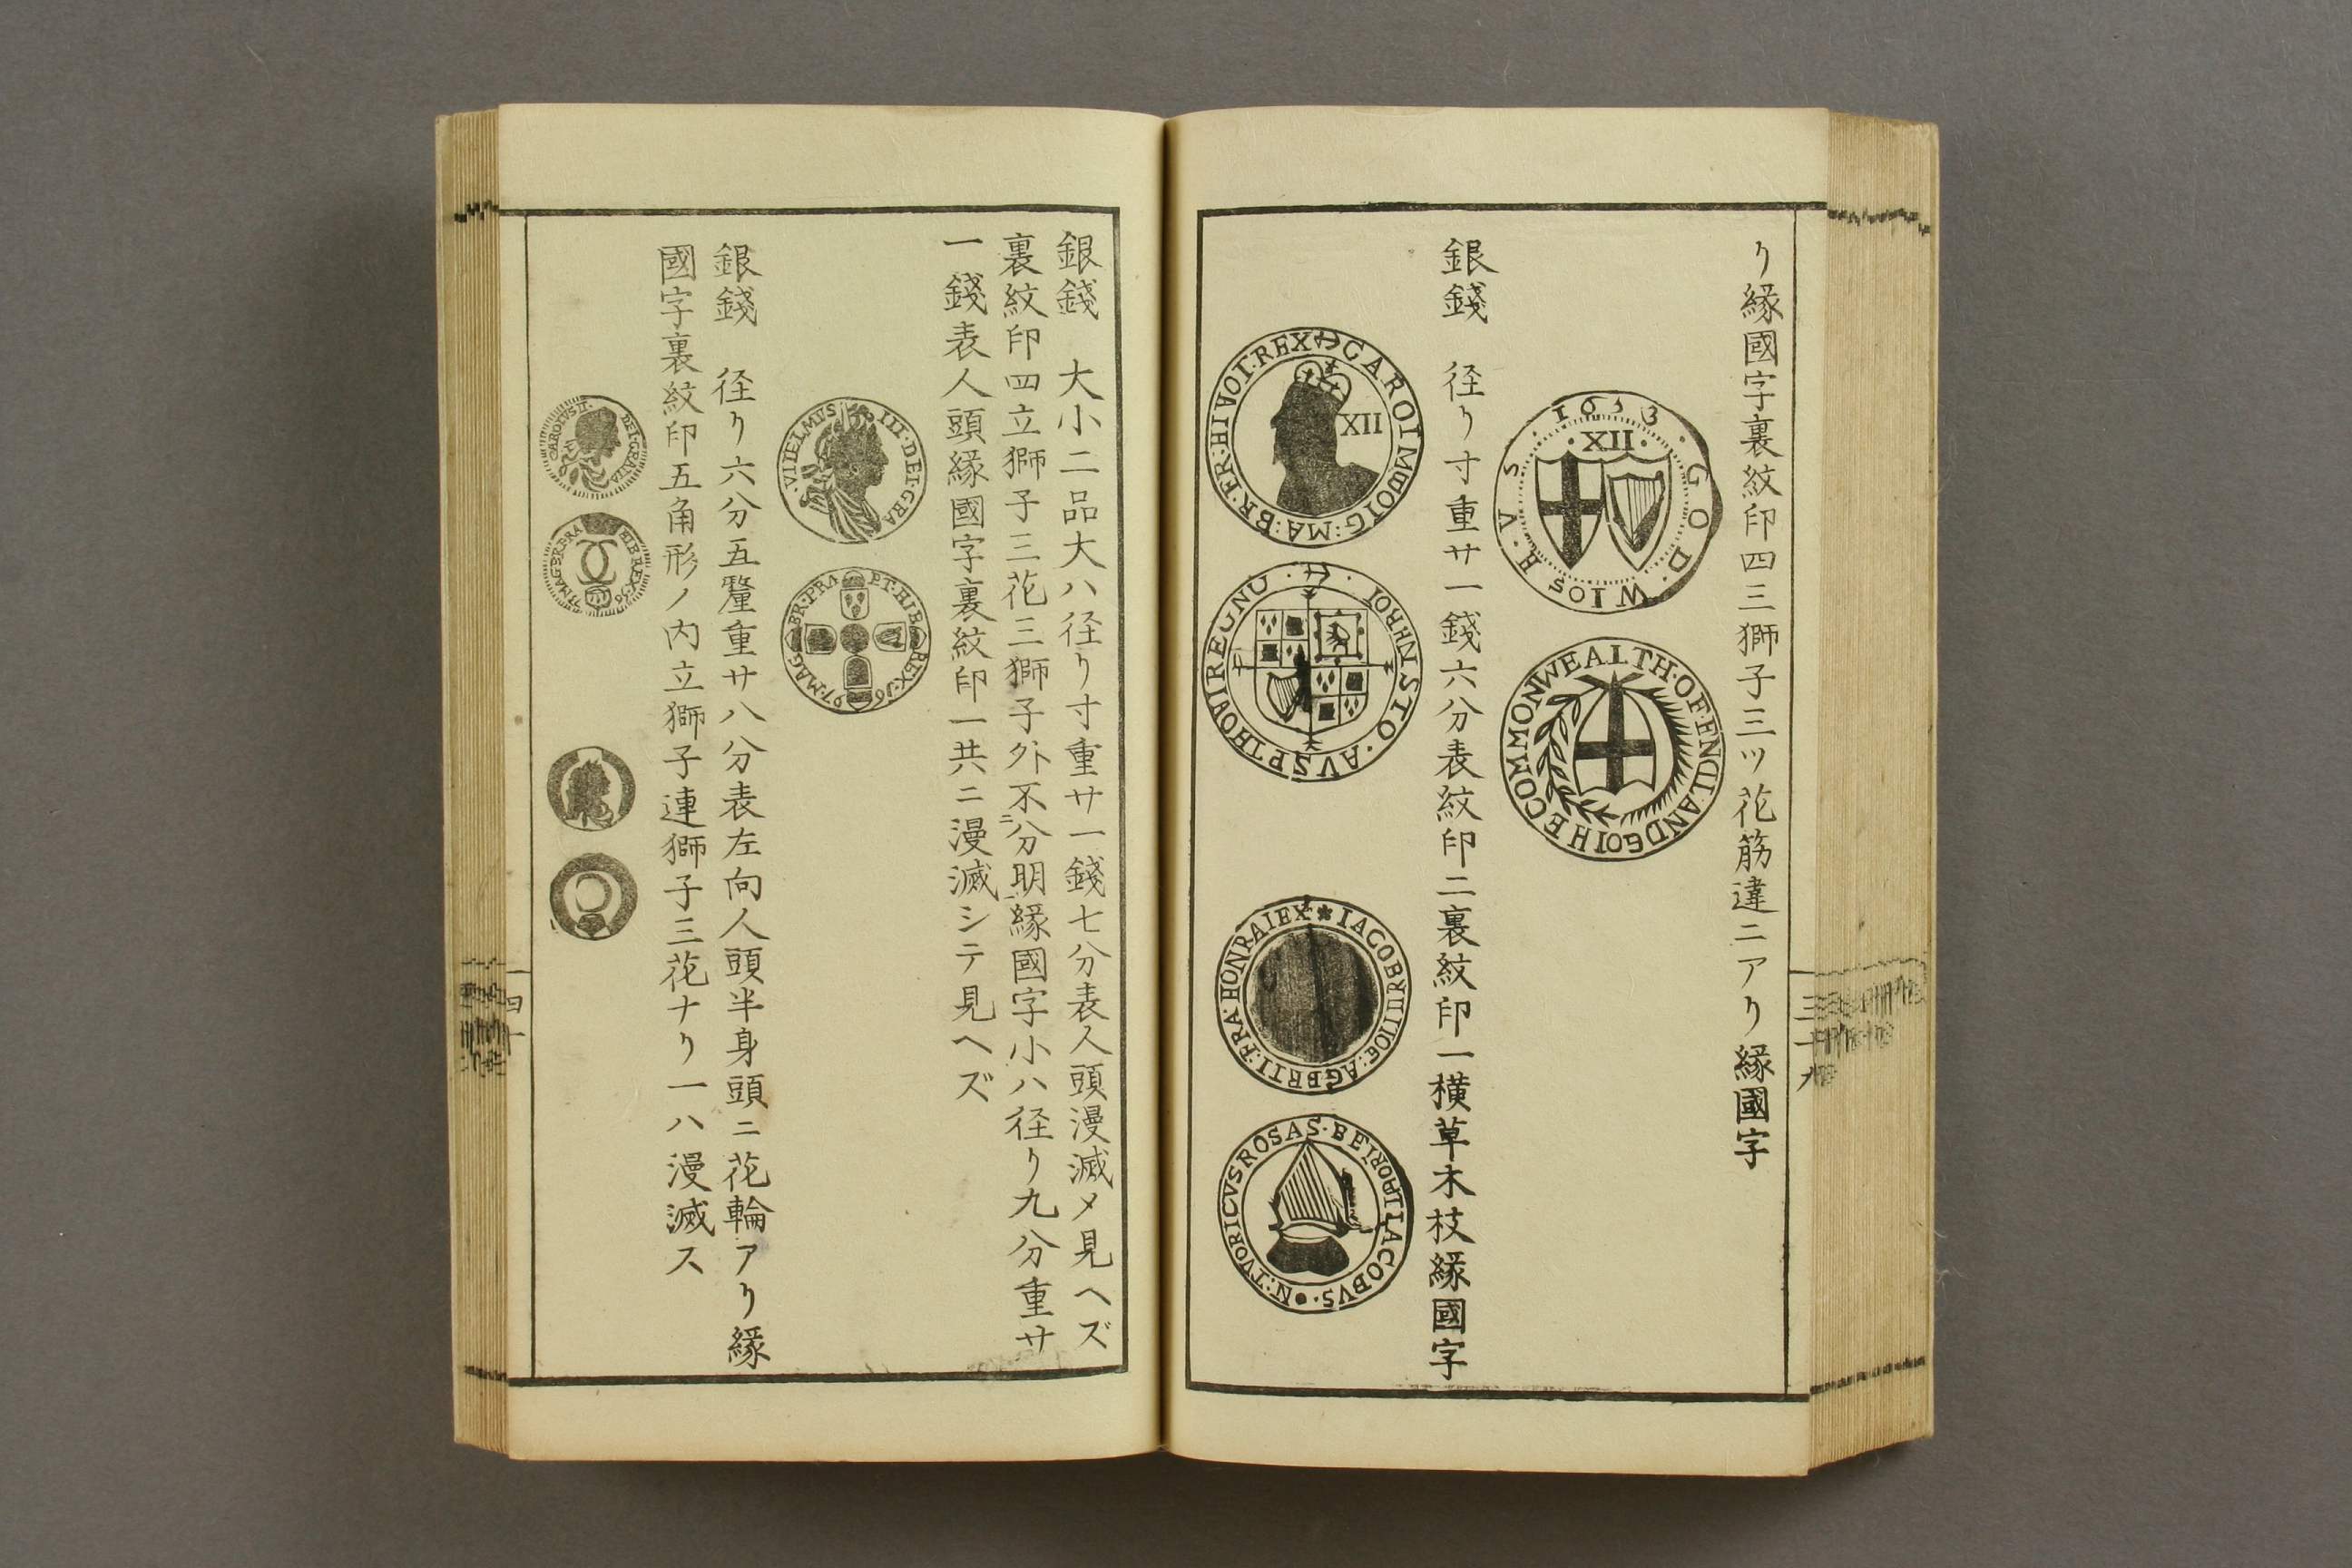 リ縁國字裏紋印四三獅子三ツ花筋違ニアリ縁國字
1653
・XII・
GOD・WIOS H・VS
COMMONWEALTH・OF・ENDLAND
銀錢 径リ寸重サ一錢六分表紋印二裏紋印一横草木枝縁國字
XII
REX
CAROI
MA・BR・FR・HI
AVSP
REGNO
IACOB
FRA・HON
ROSAS・
IACOBVS・
三十九
銀錢 大小二品大ハ径リ寸重サ一錢七分表人頭漫滅メ見ヘズ
裏紋印四立獅子三花三獅子外不分明縁國字小ハ径リ九分重サ
一錢表人頭縁國字裏紋印一共ニ漫滅シテ見ヘズ
III・DEI・GRA
BR・FRA
ET・HIB
REX・
MAG
銀錢 径リ六分五釐重サ八分表左向人頭半身頭ニ花輪アリ縁
國字裏紋印五角形ノ内立獅子連獅子三花ナリ一ハ漫滅ス
CAROIVS II・
DEI・GRATIA
四十